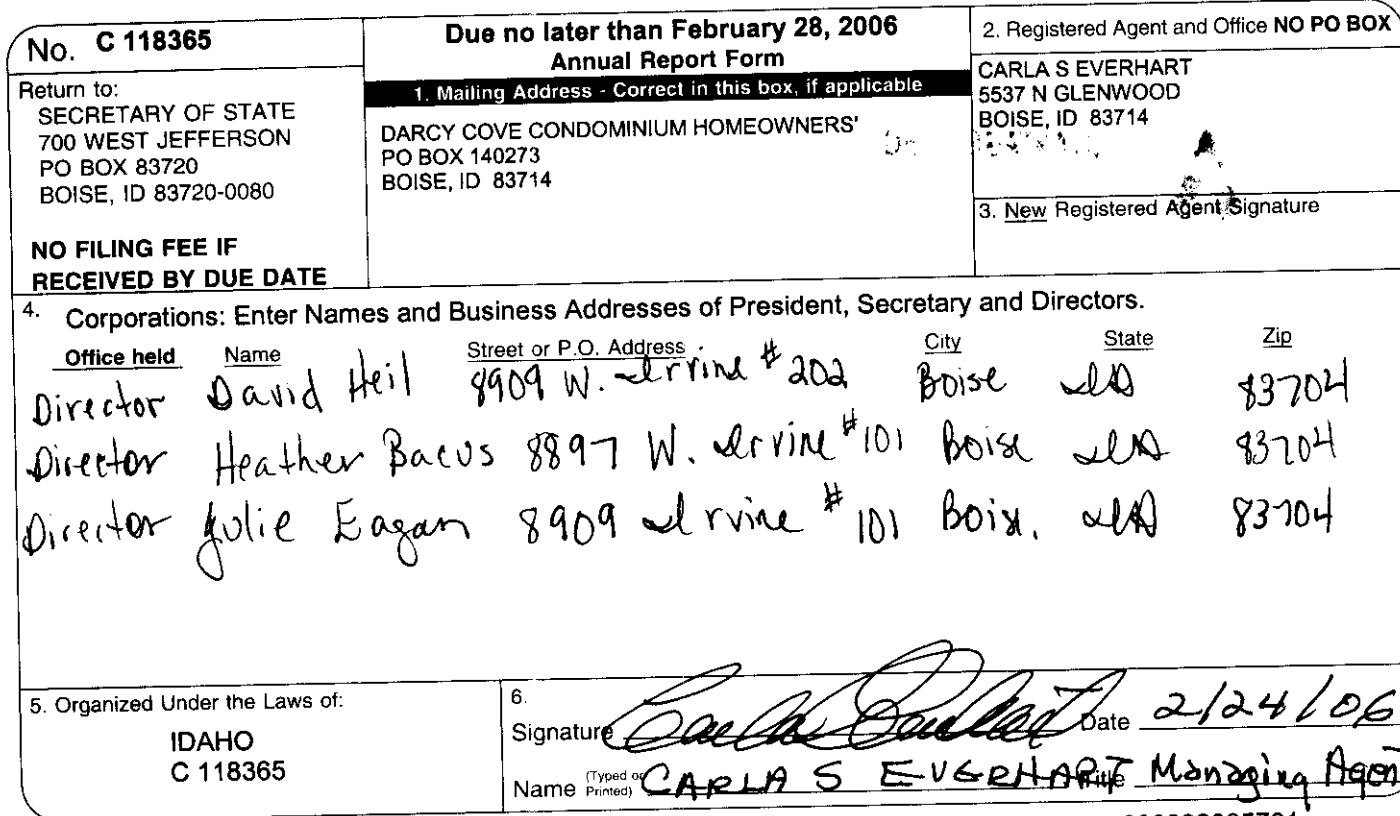 No. C 118365
Return to:
SECRETARY OF STATE
700 WEST JEFFERSON
PO BOX 83720
BOISE, ID 83720-0080
NO FILING FEE IF
RECEIVED BY DUE DATE
Due no later than February 28, 2006
Annual Report Form
1. Mailing Address - Correct in this box, if applicable
DARCY COVE CONDOMINIUM HOMEOWNERS'
PO BOX 140273
BOISE, ID 83714
2. Registered Agent and Office NO PO BOX
CARLA S EVERHART
5537 N GLENWOOD
BOISE, ID 83714
3. New Registered Agent Signature
4. Corporations: Enter Names and Business Addresses of President, Secretary and Directors.
Office held Name Street or P.O. Address City State Zip
Director David Heil 8909 W. Irvine #202 Boise ID 83704
Director Heather Bacus 8897 W. Irvine #101 Boise ID 83704
Director Julie Eagan 8909 Irvine #101 Boise. ID 83704
5. Organized Under the Laws of:
IDAHO
C 118365
6.
Signature Carla Everhart Date 2/24/06
Name (Typed or Printed) CARLA S EVERHART Title Managing Agent